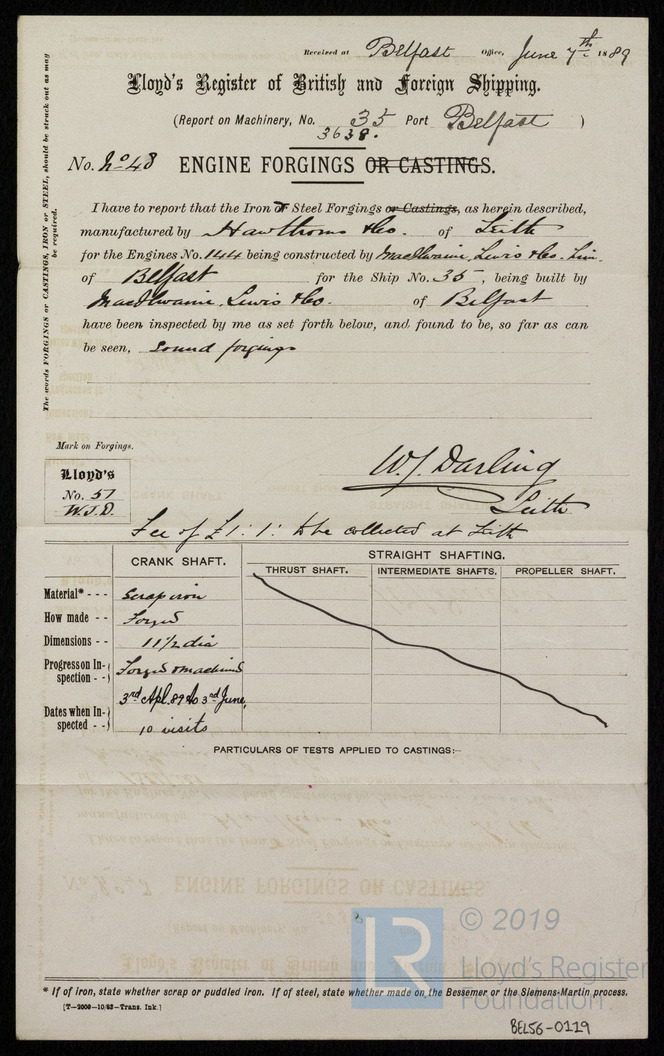 Received at Belfast Office, June 7th 1889
Lloyd's Register of British and Foreign Shipping.
(Report on Machinery, No. 35 Port Belfast )
3638.
No. No 48 ENGINE FORGINGS OR CASTINGS.
The words FORGINGS or CASTINGS, IRON or STEEL, should be struck out as may be required.
I have to report that the Iron or Steel Forgings or Castings, as herein described,
manufactured by Hawthorns & Co. of Leith
for the Engines No. 144 being constructed by MacIlwaine, Lewis & Co. Lim.
of Belfast for the Ship No. 35, being built by
MacIlwaine, Lewis & Co. of Belfast
have been inspected by me as set forth below, and found to be, so far as can
be seen, Sound forgings
Mark on Forgings.
Lloyd's
No. 57
W.J.D.
W.J. Darling
Leith
Fee of £1:1: to be collected at Leith
CRANK SHAFT. STRAIGHT SHAFTING.
THRUST SHAFT. INTERMEDIATE SHAFTS. PROPELLER SHAFT.
Material* - - Scrap iron
How made - - Forged
Dimensions - - 11 1/2 dia
Progress on Inspection - - Forged & machined
Dates when Inspected - - 3rd Apl. 89 to 3rd June,
10 visits
PARTICULARS OF TESTS APPLIED TO CASTINGS:—
LR © 2019
Lloyd's Register
Foundation
* If of iron, state whether scrap or puddled iron. If of steel, state whether made on the Bessemer or the Siemens-Martin process.
[T—2000—10/83—Trans. Ink.]
BEL56-0119